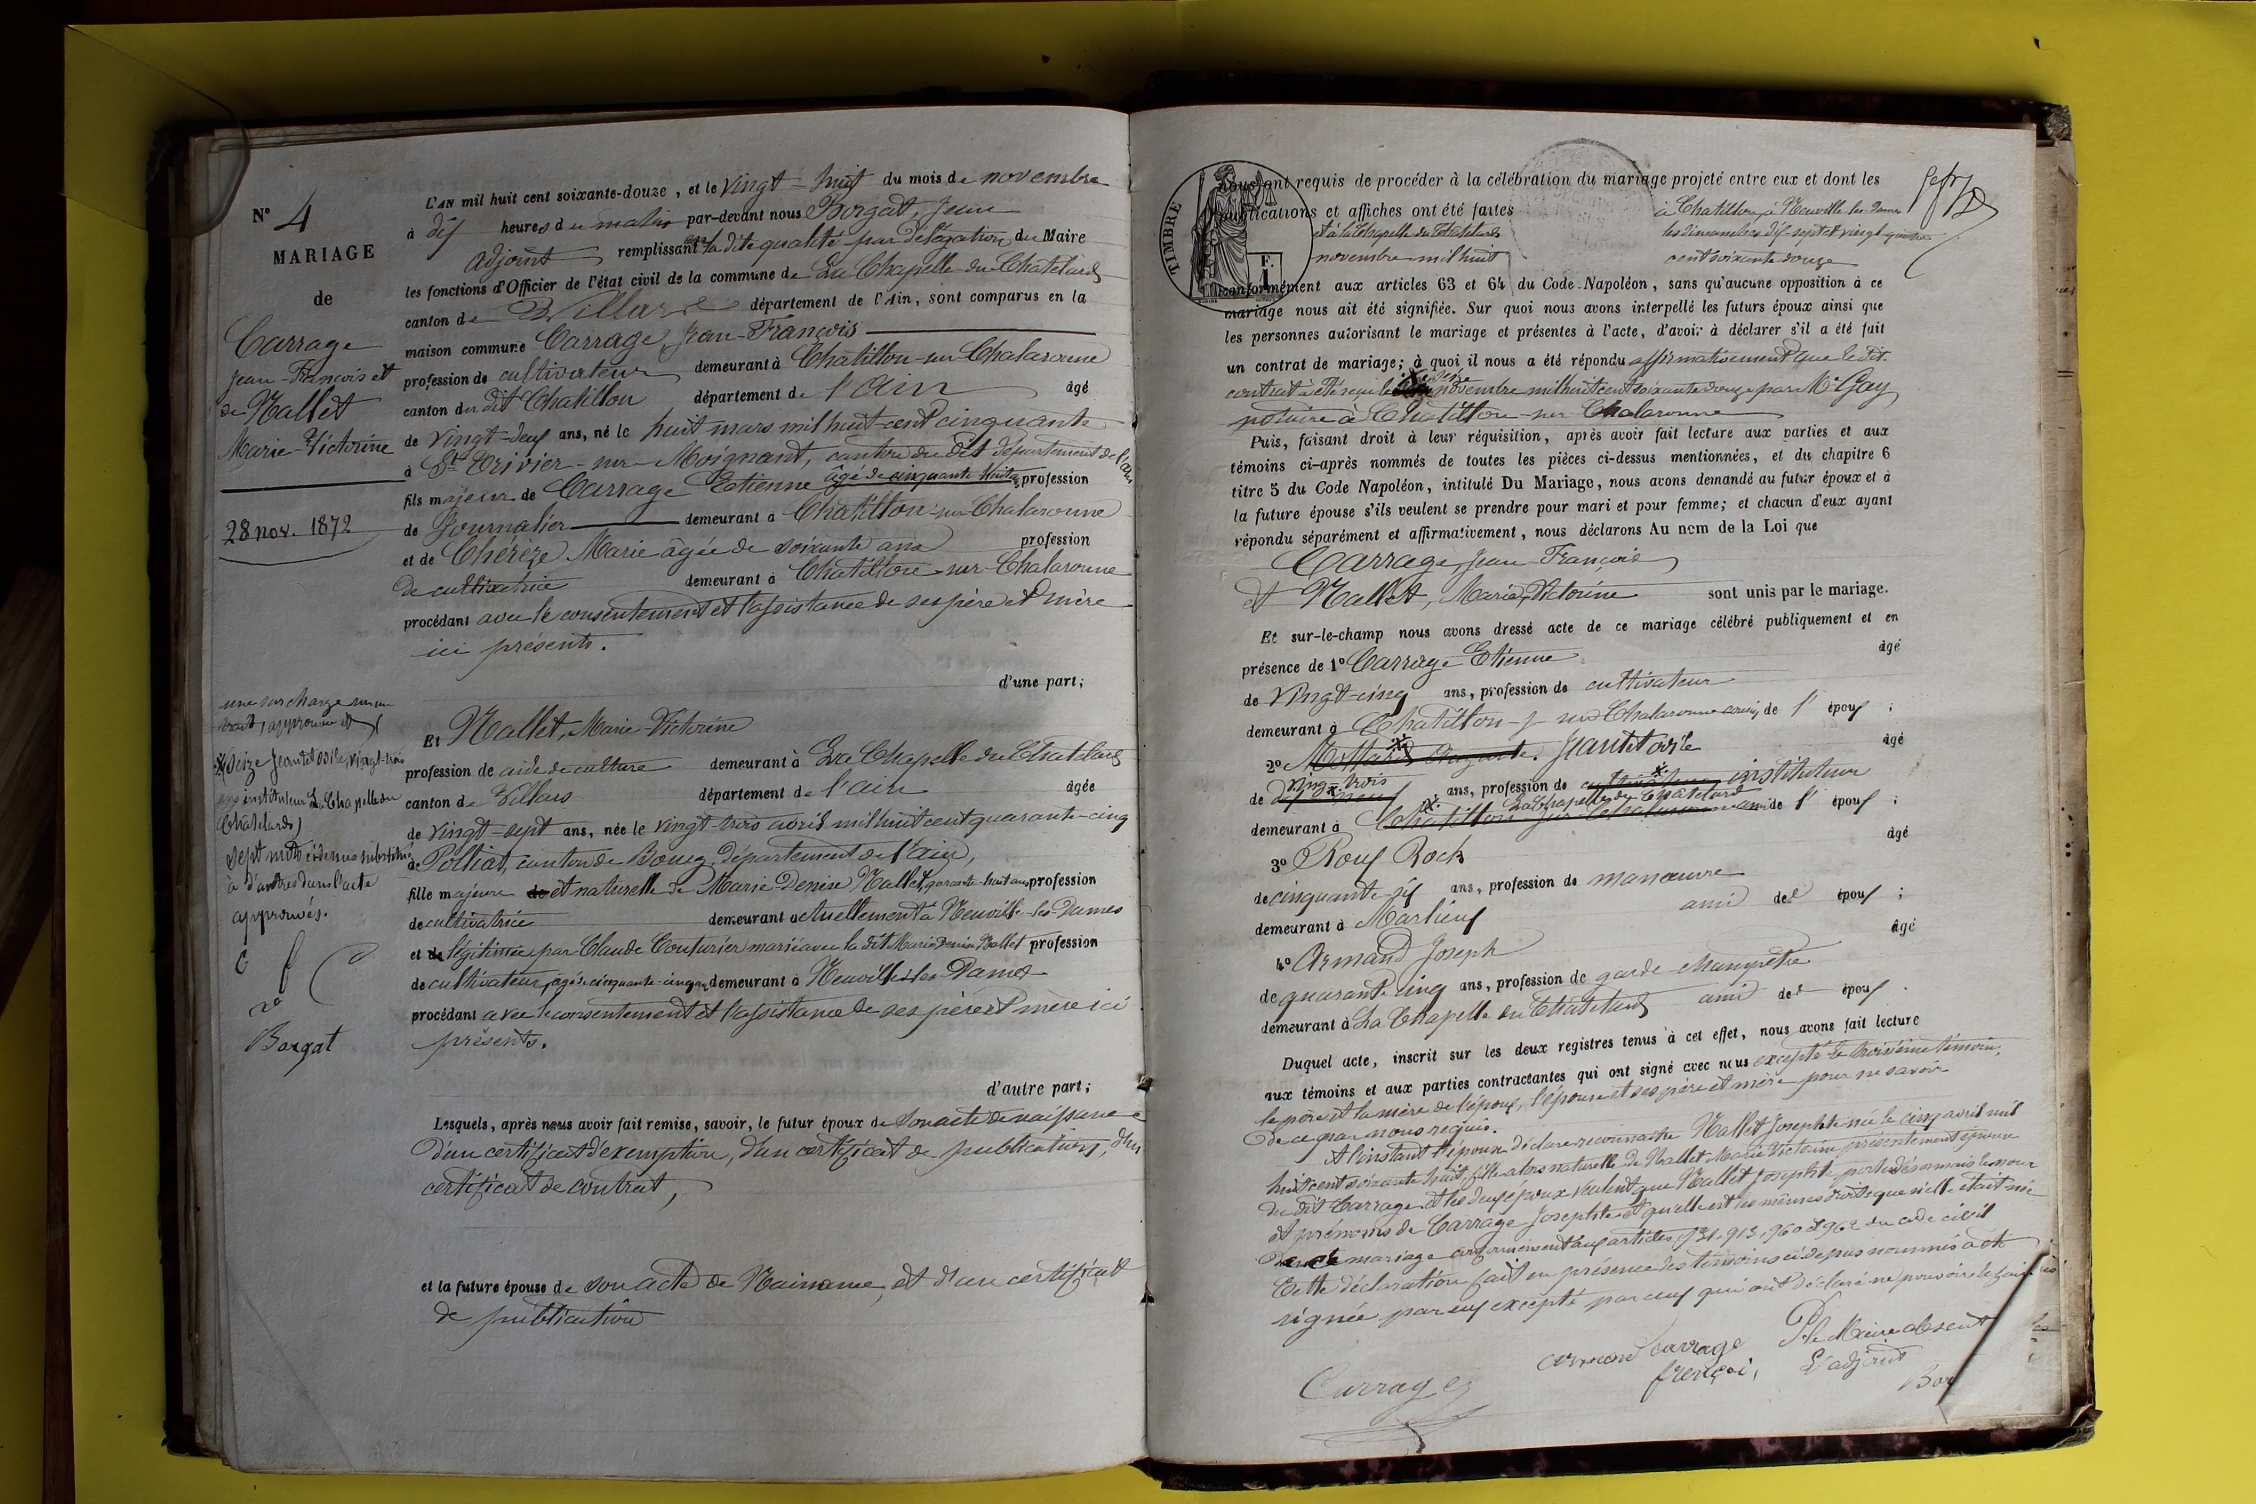 N° 4
MARIAGE
de
Carrage
Jean-François et
de Nallet
Marie-Victorine
28 nov. 1872
une surcharge sur un
trait, approuvée et
seize Jeantet Odile, vingt-trois
instituteur La Chapelle du
Châtelard,
sept mots ci-dessus substitués
à d'autres dans l'acte
approuvés.
Borgat
L'AN mil huit cent soixante-douze, et le Vingt-huit du mois de novembre
à dix heures du matin par-devant nous Borgat, Jean
adjoint remplissant en la dite qualité par délégation du Maire
les fonctions d'Officier de l'état civil de la commune de La Chapelle du Châtelard
canton de Villars département de l'Ain, sont comparus en la
maison commune Carrage, Jean-François
profession de cultivateur demeurant à Chatillon-sur-Chalaronne
canton du dit Chatillon département de l'Ain âgé
de vingt-deux ans, né le huit mars mil huit-cent cinquante
à St Trivier-sur-Moignant, canton du dit département de l'Ain
fils majeur de Carrage Etienne âgé de cinquante-huit ans profession
de Journalier demeurant à Chatillon-sur-Chalaronne
et de Chérèze Marie âgée de soixante ans profession
de cultivatrice demeurant à Chatillon-sur-Chalaronne
procédant avec le consentement et l'assistance de ses père et mère
ici présents.
d'une part;
Et Nallet, Marie-Victorine
profession de aide de culture demeurant à La Chapelle du Châtelard
canton de Villars département de l'Ain âgée
de vingt-sept ans, née le vingt-trois avril mil huit cent quarante-cinq
à Polliat, canton de Bourg, Département de l'Ain,
fille majeure de et naturelle de Marie Denise Nallet, quarante-huit ans profession
de cultivatrice demeurant actuellement à Neuville-les-Dames
et de légitimée par Claude Couturier marié avec la dit Marie Denise Nallet profession
de cultivateur, âgé de cinquante-cinq ans demeurant à Neuville les Dames
procédant avec le consentement et l'assistance de ses père et mère ici
présents.
d'autre part;
Lesquels, après nous avoir fait remise, savoir, le futur époux de son acte de naissance
d'un certificat d'exemption, d'un certificat de publications, d'un
certificat de contrat,
et la future épouse de son acte de Naissance, et d'un certificat
de publication
TIMBRE
F. 1
nous ont requis de procéder à la célébration du mariage projeté entre eux et dont les
publications et affiches ont été faites à Chatillon, à Neuville les Dames
et à la Chapelle du Châtelard les dimanches dix-sept et vingt-quatre
novembre mil huit cent soixante douze
conformément aux articles 63 et 64 du Code Napoléon, sans qu'aucune opposition à ce
mariage nous ait été signifiée. Sur quoi nous avons interpellé les futurs époux ainsi que
les personnes autorisant le mariage et présentes à l'acte, d'avoir à déclarer s'il a été fait
un contrat de mariage; à quoi il nous a été répondu affirmativement que le dit
contrat a été reçu le seize novembre mil huit cent soixante douze par Me Gay
notaire à Chatillon-sur-Chalaronne
Puis, faisant droit à leur réquisition, après avoir fait lecture aux parties et aux
témoins ci-après nommés de toutes les pièces ci-dessus mentionnées, et du chapitre 6
titre 5 du Code Napoléon, intitulé Du Mariage, nous avons demandé au futur époux et à
la future épouse s'ils veulent se prendre pour mari et pour femme; et chacun d'eux ayant
répondu séparément et affirmativement, nous déclarons Au nom de la Loi que
Carrage, Jean-François
et Nallet, Marie, Victorine sont unis par le mariage.
Et sur-le-champ nous avons dressé acte de ce mariage célébré publiquement et en
présence de 1° Carrage Etienne âgé
de vingt-cinq ans, profession de cultivateur
demeurant à Chatillon-sur-Chalaronne cousin de l'époux;
2° Jeantet Odile âgé
de vingt-trois ans, profession de cultivateur instituteur
demeurant à Chatillon-sur-Chalaronne La Chapelle du Châtelard ami de l'époux;
3° Roux Roch âgé
de cinquante-six ans, profession de manœuvre
demeurant à Marlieux ami de l'époux;
4° Armand Joseph âgé
de quarante cinq ans, profession de garde champêtre
demeurant à La Chapelle du Châtelard ami de l'époux.
Duquel acte, inscrit sur les deux registres tenus à cet effet, nous avons fait lecture
aux témoins et aux parties contractantes qui ont signé avec nous excepté le troisième témoin,
le père et la mère de l'époux, l'épouse et ses père et mère pour ne savoir
de ce par nous requis.
A l'instant l'époux déclare reconnaître Nallet Josephte née le cinq avril mil
huit cent soixante huit, fille alors naturelle de Nallet Marie Victorine présentement épouse
du dit Carrage, et les deux époux veulent que Nallet Josephte porte désormais les nom
et prénoms de Carrage Josephte et qu'elle ait les mêmes droits que si elle était née
de ce mariage conformément aux articles 331, 913, 960 et 962 du code civil
Cette déclaration fait en présence des témoins ci-dessus nommés a été
signée par eux excepté par ceux qui ont déclaré ne pouvoir le faire
Carrage
Armand Carrage
françoi,
Pr le Maire absent
L'adjoint
Bor